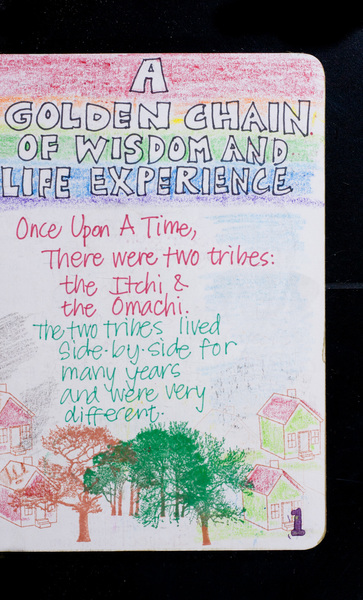 A
GOLDEN CHAIN
OF WISDOM AND
LIFE EXPERIENCE
Once Upon A Time,
There were two tribes:
the Itchi &
the Omachi.
The two tribes lived
side-by-side for
many years
and were very
different.
1